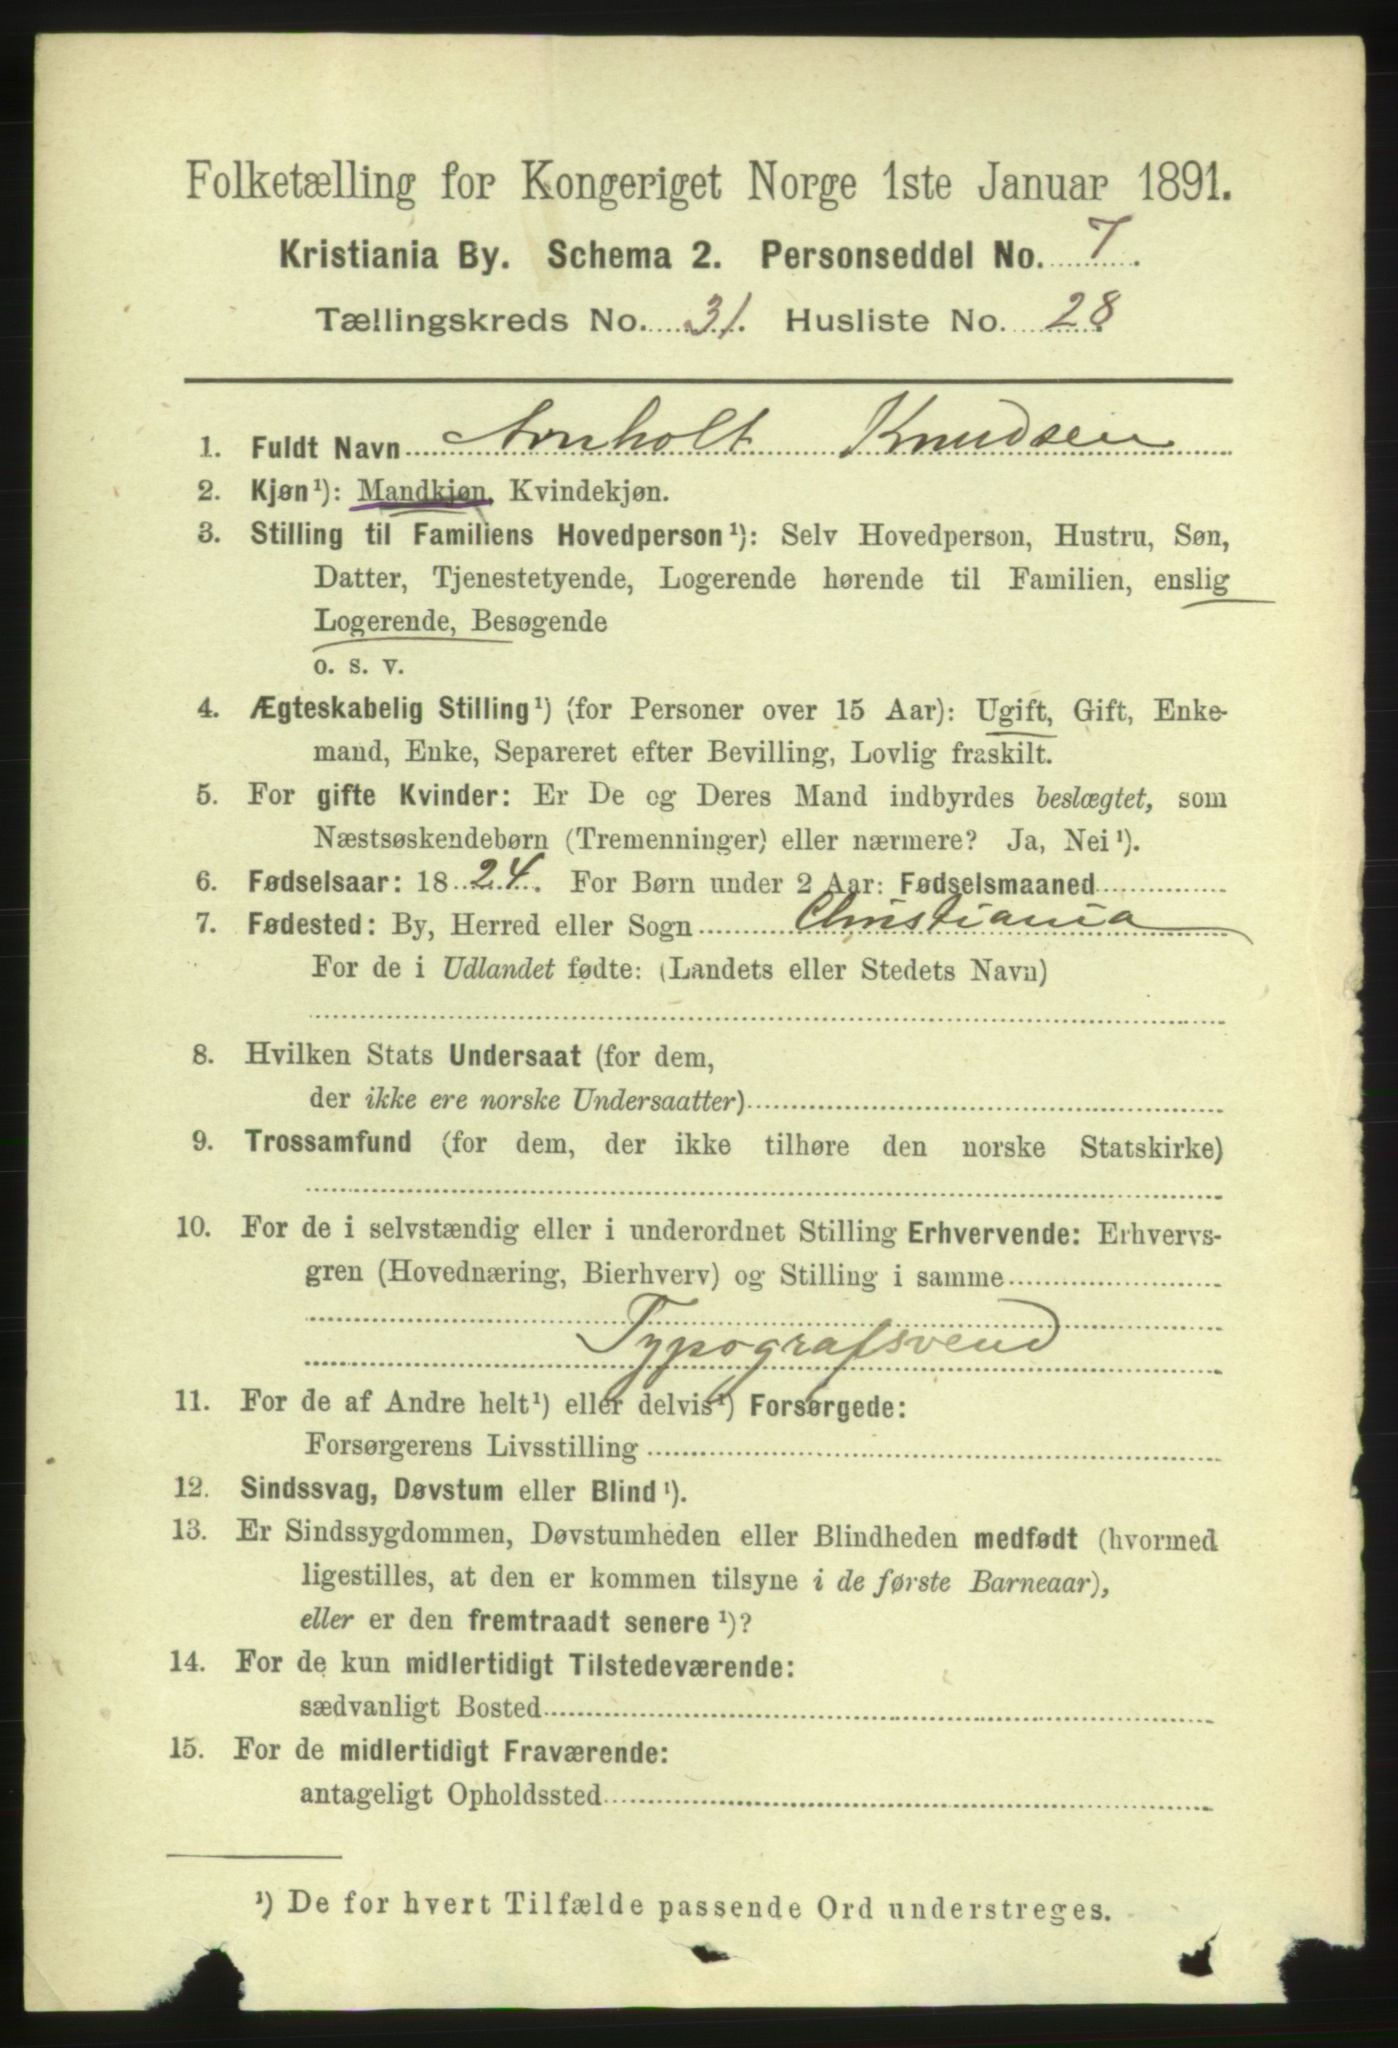 Folketælling for Kongeriget Norge 1ste Januar 1891.
Kristiania By. Schema 2. Personseddel No. 7.
Tællingskreds No. 31. Husliste No. 28
1. Fuldt Navn Arnholt Knudsen
2. Kjøn¹): Mandkjøn, Kvindekjøn.
3. Stilling til Familiens Hovedperson¹): Selv Hovedperson, Hustru, Søn,
Datter, Tjenestetyende, Logerende hørende til Familien, enslig
Logerende, Besøgende
o. s. v.
4. Ægteskabelig Stilling¹) (for Personer over 15 Aar): Ugift, Gift, Enke-
mand, Enke, Separeret efter Bevilling, Lovlig fraskilt.
5. For gifte Kvinder: Er De og Deres Mand indbyrdes beslægtet, som
Næstsøskendebørn (Tremenninger) eller nærmere? Ja, Nei¹).
6. Fødselsaar: 1824. For Børn under 2 Aar: Fødselsmaaned
7. Fødested: By, Herred eller Sogn Christiania
For de i Udlandet fødte: (Landets eller Stedets Navn)
8. Hvilken Stats Undersaat (for dem,
der ikke ere norske Undersaatter)
9. Trossamfund (for dem, der ikke tilhøre den norske Statskirke)
10. For de i selvstændig eller i underordnet Stilling Erhvervende: Erhvervs-
gren (Hovednæring, Bierhverv) og Stilling i samme
Typografsvend
11. For de af Andre helt¹) eller delvis¹) Forsørgede:
Forsørgerens Livsstilling
12. Sindssvag, Døvstum eller Blind¹).
13. Er Sindssygdommen, Døvstumheden eller Blindheden medfødt (hvormed
ligestilles, at den er kommen tilsyne i de første Barneaar),
eller er den fremtraadt senere¹)?
14. For de kun midlertidigt Tilstedeværende:
sædvanligt Bosted
15. For de midlertidigt Fraværende:
antageligt Opholdssted
¹) De for hvert Tilfælde passende Ord understreges.